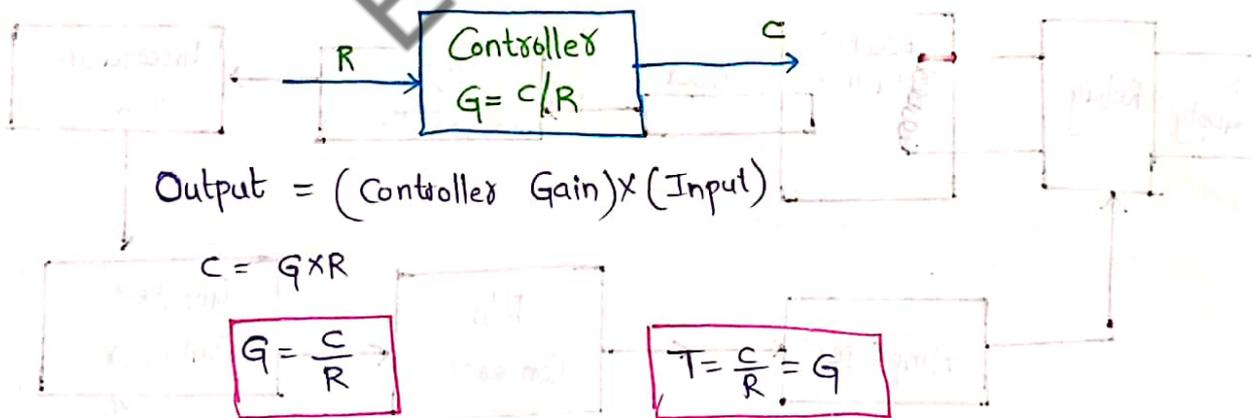 R
Controller
G = C/R
C
Output = (Controller Gain) × (Input)
C = G×R
G = C/R
T = C/R = G